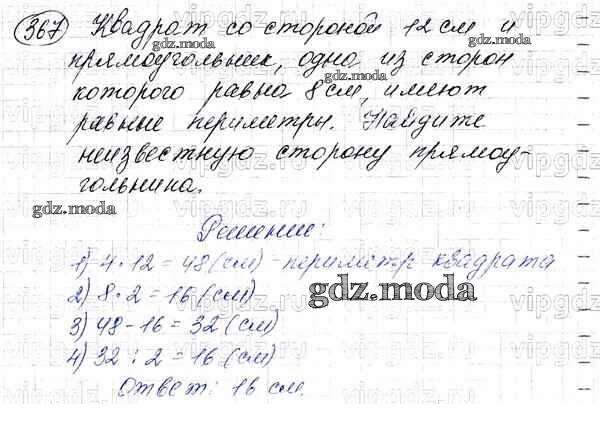 367 Квадрат со стороной 12 см и
прямоугольник, одна из сторон
которого равна 8 см, имеют
равные периметры. Найдите
неизвестную сторону прямоу-
гольника.
Решение:
1) 4 · 12 = 48 (см) - периметр квадрата
2) 8 · 2 = 16 (см)
3) 48 - 16 = 32 (см)
4) 32 : 2 = 16 (см)
Ответ: 16 см.
gdz.moda
gdz.moda
gdz.moda
gdz.moda
gdz.moda